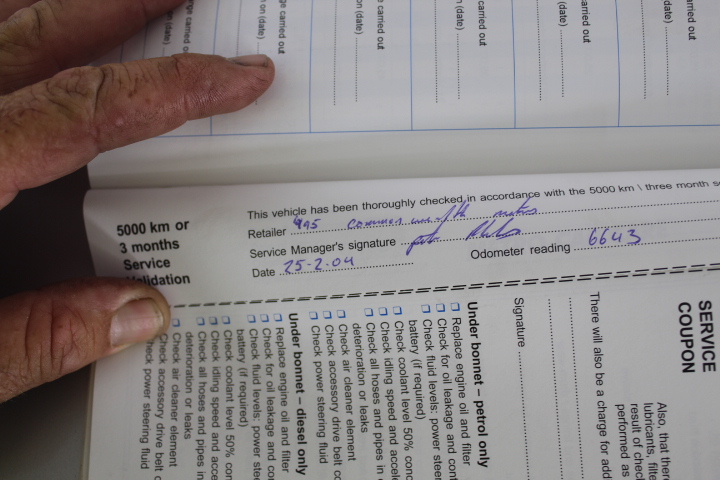 carried out
on (date)
carried out
on (date)
carried out
(date)
carried out
(date)
carried out
(date)
carried out
This vehicle has been thoroughly checked in accordance with the 5000 km \ three month
5000 km or
3 months
Service
Validation
Retailer
Service Manager's signature
Odometer reading 6643
Date 25-2-04
SERVICE
COUPON
Also, that there
lubricants, filte
result of check
performed as
There will also be a charge for add
Signature
Under bonnet – petrol only
Replace engine oil and filter
Check for oil leakage and cont
Check fluid levels: power stee
battery (if required)
Check coolant level 50% conc
Check idling speed and accele
Check all hoses and pipes in e
deterioration or leaks
Check air cleaner element
Check accessory drive belt co
Check power steering fluid
Under bonnet – diesel only
Replace engine oil and filter
Check for oil leakage and co
Check fluid levels: power stee
battery (if required)
Check coolant level 50% con
Check idling speed and acce
Check all hoses and pipes in
deterioration or leaks
Check air cleaner element
Check accessory drive belt c
heck power steering fluid